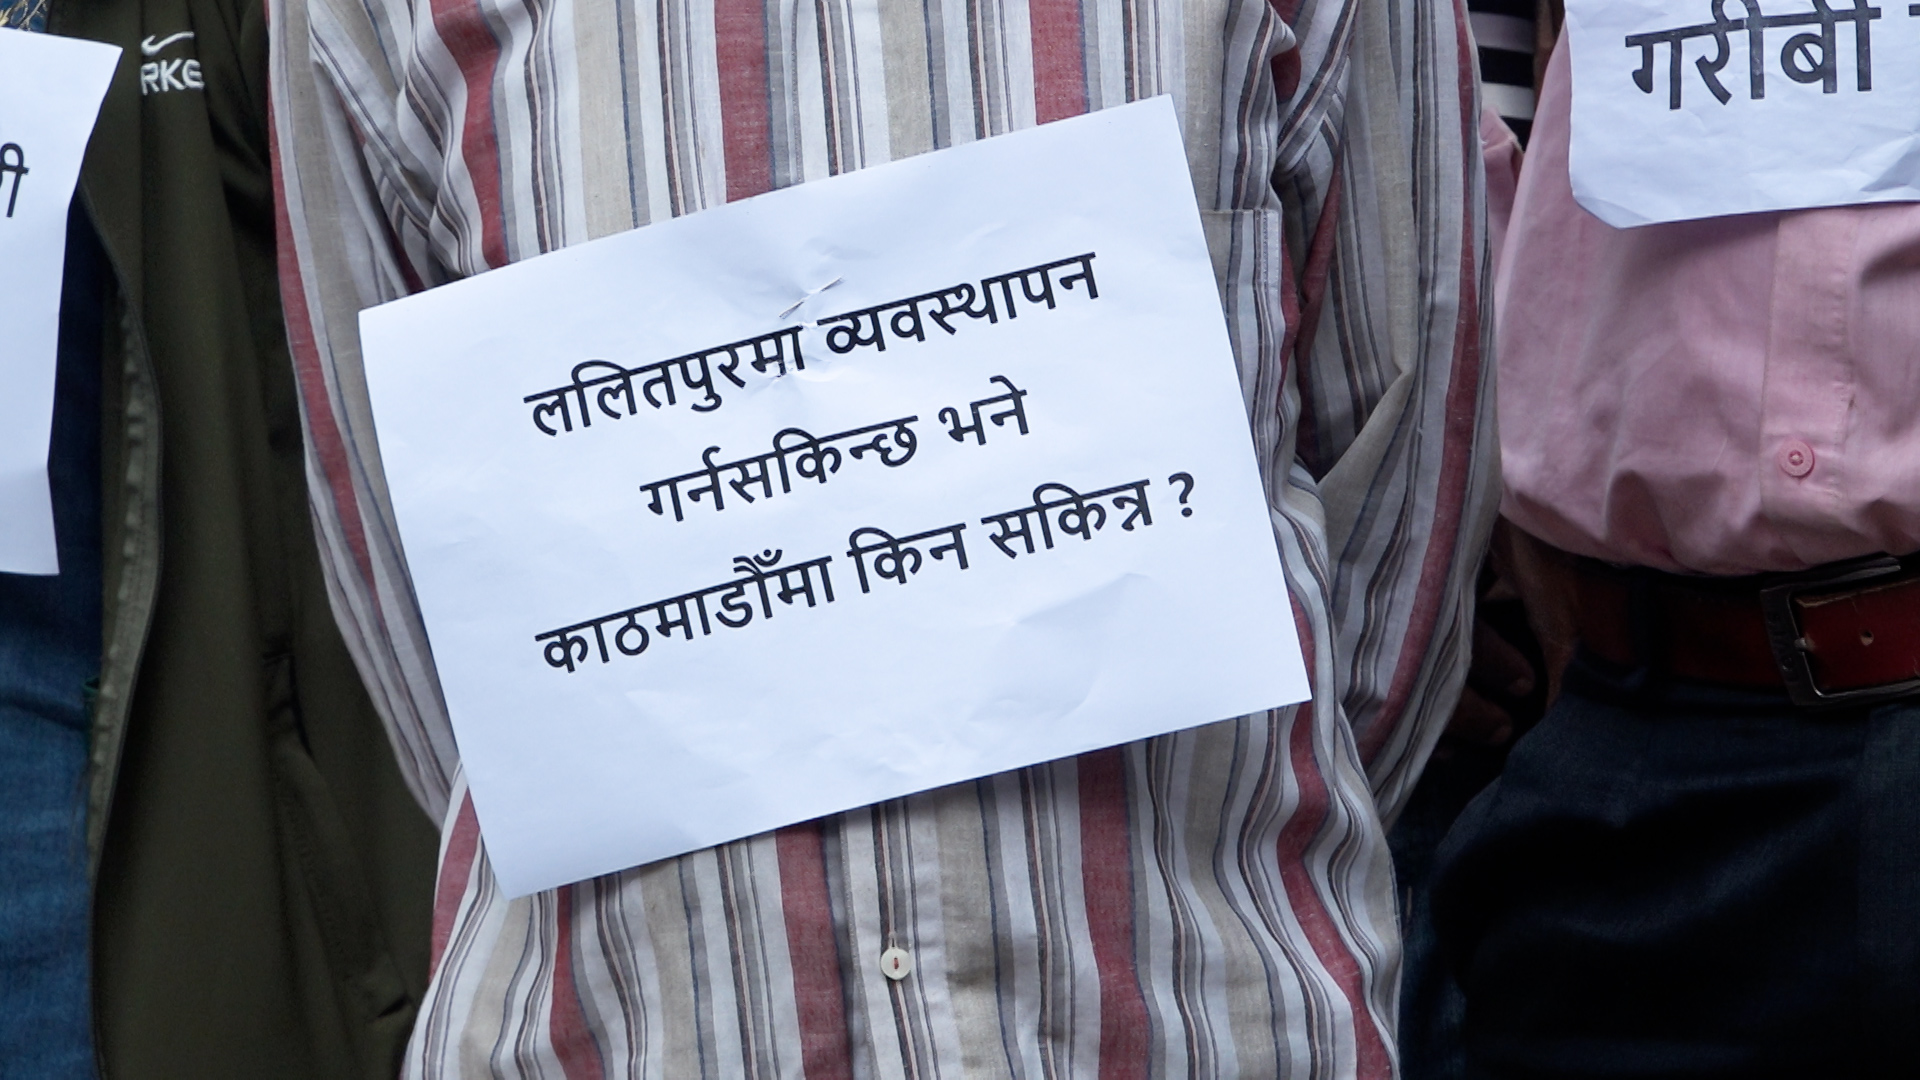 ललितपुरमा व्यवस्थापन
गर्नसकिन्छ भने
काठमाडौँमा किन सकिन्न ?
गरीबी
RKE